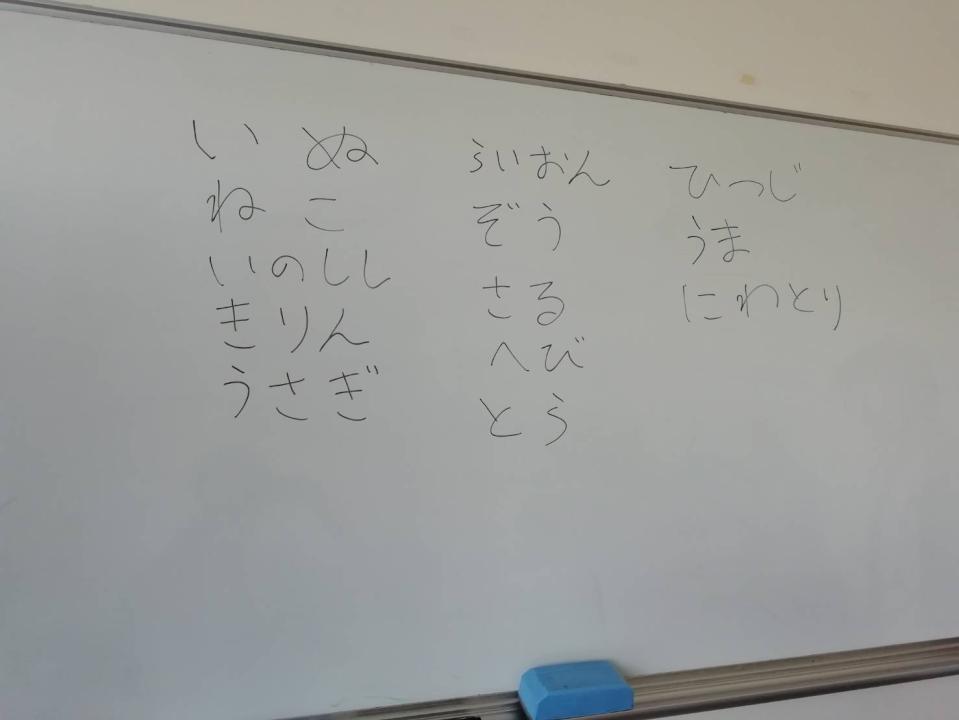 いぬ
ねこ
いのしし
きりん
うさぎ
らいおん
ぞう
さる
へび
とら
ひつじ
うま
にわとり